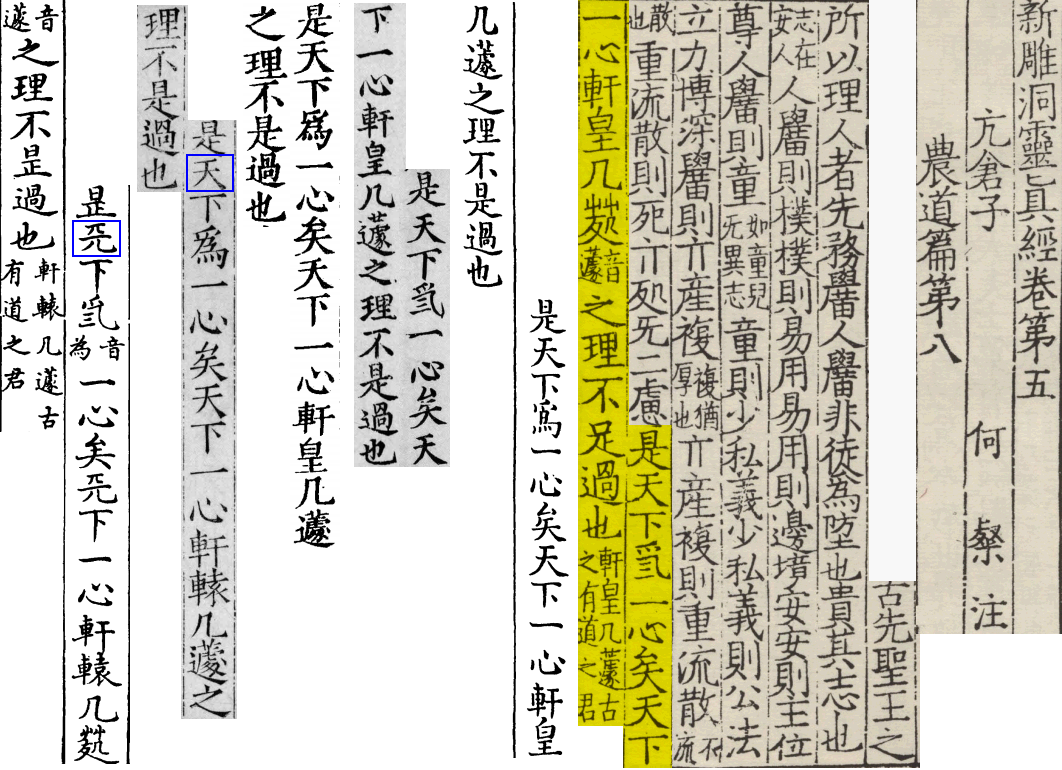 新雕洞靈真經卷第五
亢倉子 何 粲 注
農道篇第八
古先聖王之
所以理人者先務農人農非徒為墬也貴其志也
志在安人人農則樸樸則易用易用則邊境安安則主位
尊人農則童如童兒无異志童則少私義少私義則公法
立力博深農則亓産複複猶厚也亓産複則重流散不流
散也重流散則死亓処无二慮是天下爲一心矣天下
一心軒皇几蘧音蘧之理不足過也軒皇几蘧古之有道之君
是天下爲一心矣天下一心軒皇
几蘧之理不是過也
是天下爲一心矣天
下一心軒皇几蘧之理不是過也
是天下爲一心矣天下一心軒皇几蘧
之理不是過也
是天下爲一心矣天下一心軒轅几蘧之
理不是過也
是兲下爲音為一心矣兲下一心軒轅几蘧
音蘧之理不是過也軒轅几蘧古有道之君